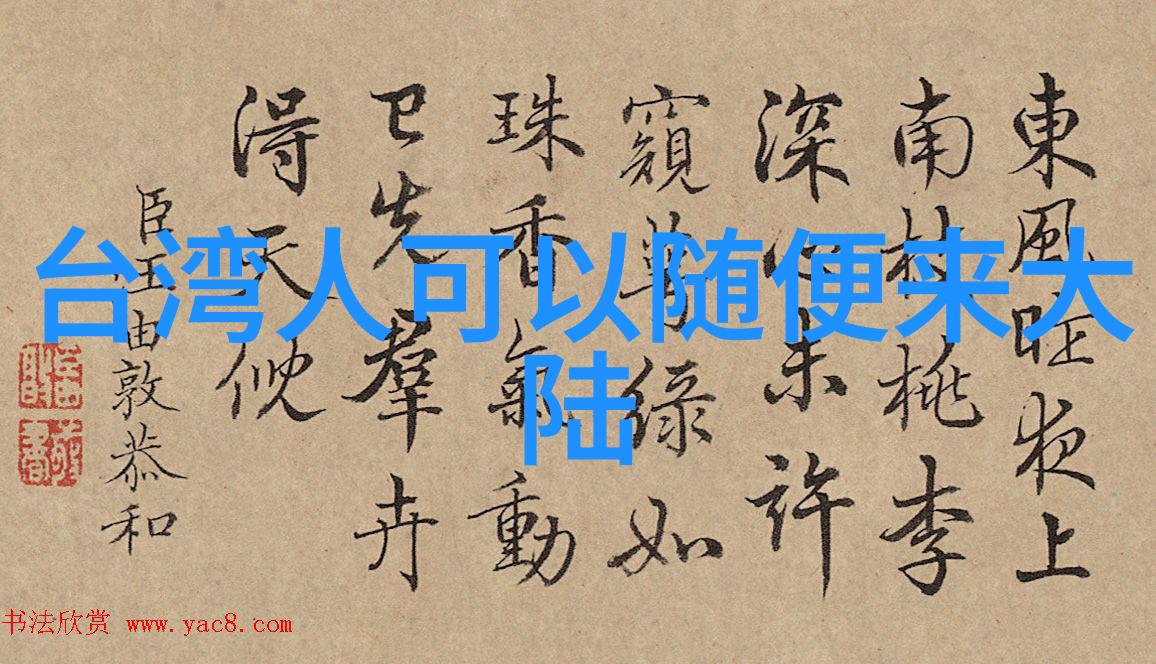 台湾人可以随便来大
陆
東風夜上
南枝桃李
深心未許
窺萼綠如
珠香氣動
已先羣卉
得天
臣汪由敦恭和
书法欣赏 www.yac8.com